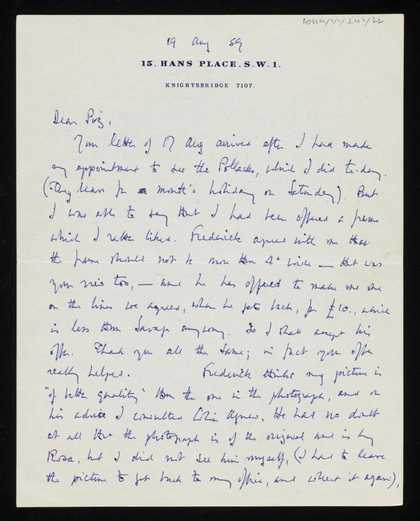 19 Aug 59
15. HANS PLACE. S.W.1.
KNIGHTSBRIDGE 7107.
Dear Poiz,
Your letter of 17 Aug arrived after I had made
my appointment to see the Pollacks, which I did to-day.
(They leave for a month's holiday on Saturday). But
I was able to say that I had been offered a frame
which I rather liked. Frederick agrees with me that
the frame should not be more than 4" wide — that was
your view too, — and he has offered to make me one
on the lines we agreed, when he gets back, for £10., which
is less than Savage anyway. So I shall accept his
offer. Thank you all the same; in fact your offer
really helped. Frederick thinks my picture is
"of better quality" than the one in the photograph, and on
his advice I consulted Colin Agnew. He had no doubt
at all that the photograph is of the original and is by
Rosa, but I did not see him myself, (I had to leave
the picture to get back to my office, and collect it again),